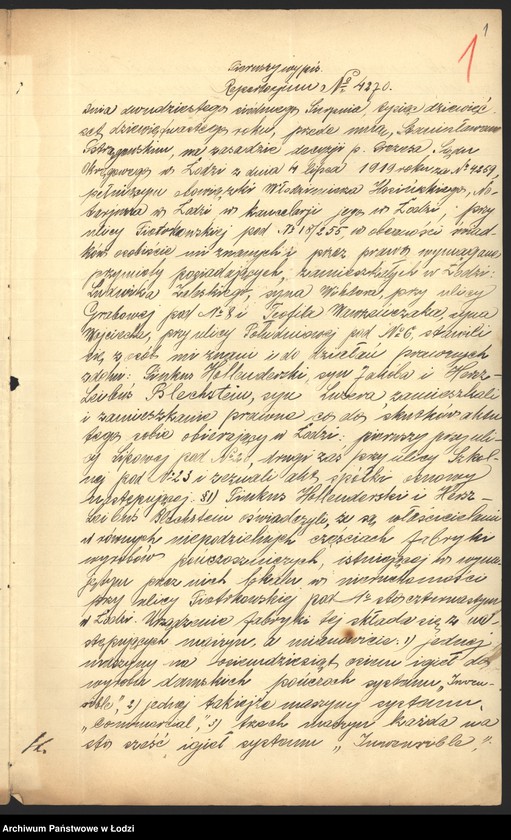 1
1
Pierwszy wypis.
Repertorjum № 4270.
Dnia dwudziestego siódmego Sierpnia, tysiąc dziewięć-
set dziewiętnastego roku, przede mną, Stanisławem
na zasadzie decyzji p. Prezesa Sądu
Okręgowego w Łodzi z dnia 4 lipca 1919 roku za № 4259,
pełniącym obowiązki Włodzimierza No-
tarjusza w Łodzi w kancelarji jego w Łodzi, przy
ulicy Piotrkowskiej pod № /255 w obecności świad-
ków osobiście mi znanych i przez prawo wymagane
przymioty posiadających, zamieszkałych w Łodzi:
Ludwika syna Wiktora, przy ulicy
Grabowej pod № 8 i Teofila Wawrzyńczaka, syna
Wojciecha, przy ulicy Południowej pod № 6, stawili
się, z osób mi znani i do działań prawnych
zdolni: Pinkus Hollenderski, syn i Hersz-
Lejbuś Blechsztein, syn zamieszkali
i zamieszkanie prawne co do skutków aktu
tego sobie obierający w Łodzi: pierwszy przy uli-
cy Lipowej pod № drugi zaś przy ulicy Szkol-
nej pod № 23 i zeznali akt spółki osnowy
następującej. §1) Pinkus Hollenderski i Hersz-
Lejbuś Blechsztein oświadczyli, że są właścicielami
w równych niepodzielnych częściach fabryki
wyrobów pończoszniczych, istniejącej w wyna-
jętym przez nich lokalu w nieruchomości
przy ulicy Piotrkowskiej pod № sto czternastym
w Łodzi. Urządzenie fabryki tej składa się z na-
stępujących maszyn, a mianowicie: 1) jednej
maszyny na osiem igieł do
wyrobu damskich pończoch systemu „Inven-
roble", 2) jednej takiejże maszyny systemu
„Commercial", 3) trzech maszyn każda na
sto sześć igieł systemu „Invenroble",
Archiwum Państwowe w Łodzi